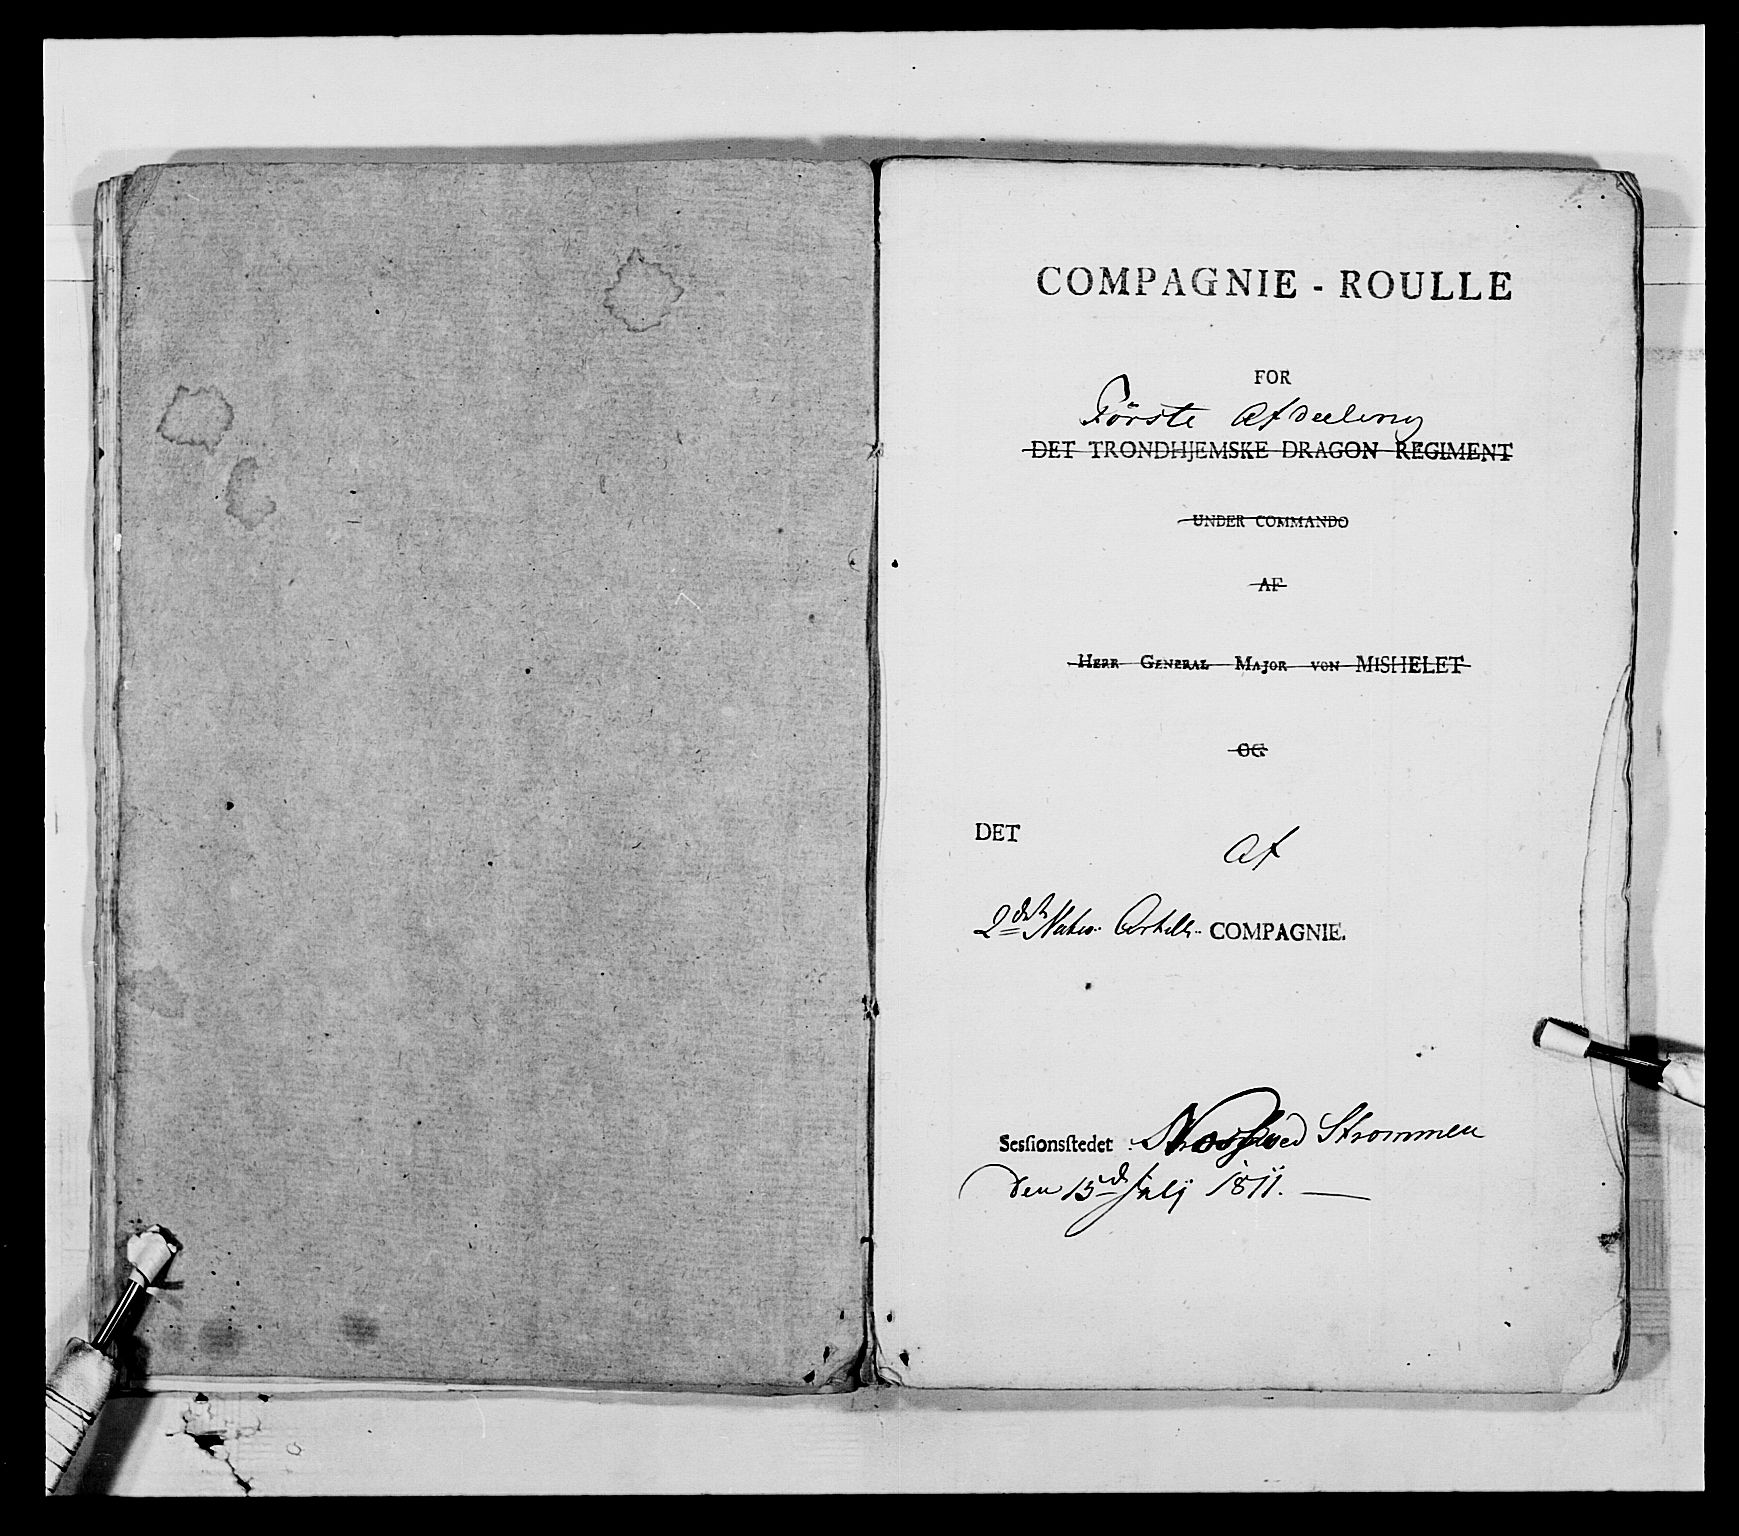 COMPAGNIE - ROULLE
FOR
Förste Afdeeling
DET TRONDHJEMSKE DRAGON REGIMENT
UNDER COMMANDO
AF
HERR GENERAL MAJOR VON MISHELET
OG
DET
Af
2den COMPAGNIE.
Sessionsstedet Strømmen
Den 15de July 1811.